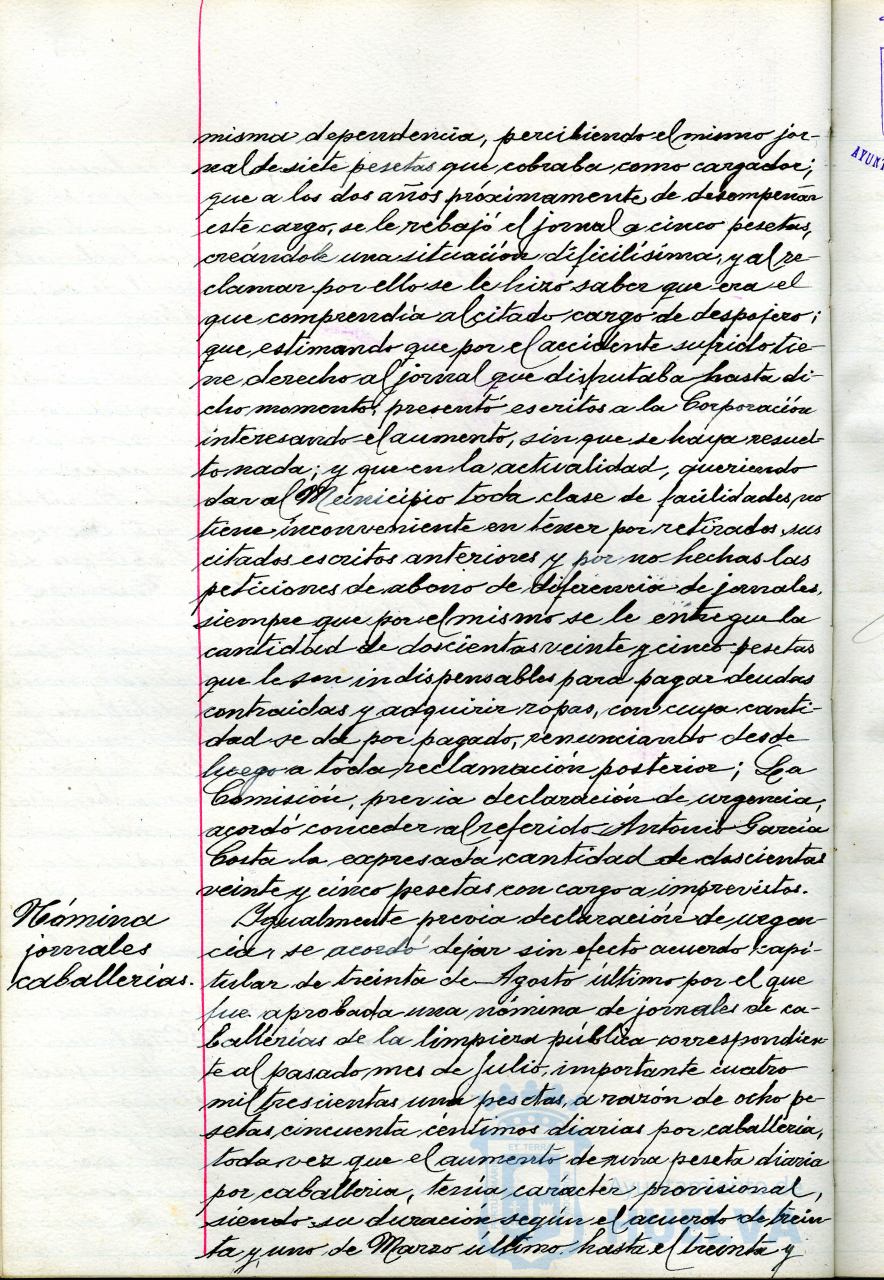 misma dependencia, percibiendo el mismo jor-
nal de siete pesetas que cobraba como cargador;
que a los dos años próximamente de desempeñar
este cargo, se le rebajó el jornal a cinco pesetas,
creándole una situación dificilísima, y al re-
clamar por ello se le hizo saber que era el
que comprendía al citado cargo de despojero;
que estimando que por el accidente sufrido tie-
ne derecho al jornal que disputaba hasta di-
cho momento, presentó escritos a la Corporación
interesando el aumento, sin que se haya resuel-
to nada; y que en la actualidad, queriendo
dar al Municipio toda clase de facilidades, no
tiene inconveniente en tener por retirados sus
citados escritos anteriores y por no hechas las
peticiones de abono de diferencia de jornales,
siempre que por el mismo se le entregue la
cantidad de doscientas veinte y cinco pesetas
que le son indispensables para pagar deudas
contraidas y adquirir ropas, con cuya canti-
dad se da por pagado, renunciando desde
luego a toda reclamación posterior; La
Comisión, previa declaración de urgencia,
acordó conceder al referido Antonio García
Costa la expresada cantidad de doscientas
veinte y cinco pesetas con cargo a imprevistos.
Nómina
jornales
caballerías.
Igualmente previa declaración de urgen-
cia, se acordó dejar sin efecto acuerdo capi-
tular de treinta de Agosto último por el que
fue aprobada una nómina de jornales de ca-
ballerías de la limpieza pública correspondien-
te al pasado mes de Julio, importante cuatro
mil trescientas una pesetas, a razón de ocho pe-
setas cincuenta céntimos diarias por caballería,
toda vez que el aumento de una peseta diaria
por caballería, tenía carácter provisional,
siendo su duración según el acuerdo de trein-
ta y uno de Marzo último hasta el treinta y
Ayuntamiento de
HUELVA